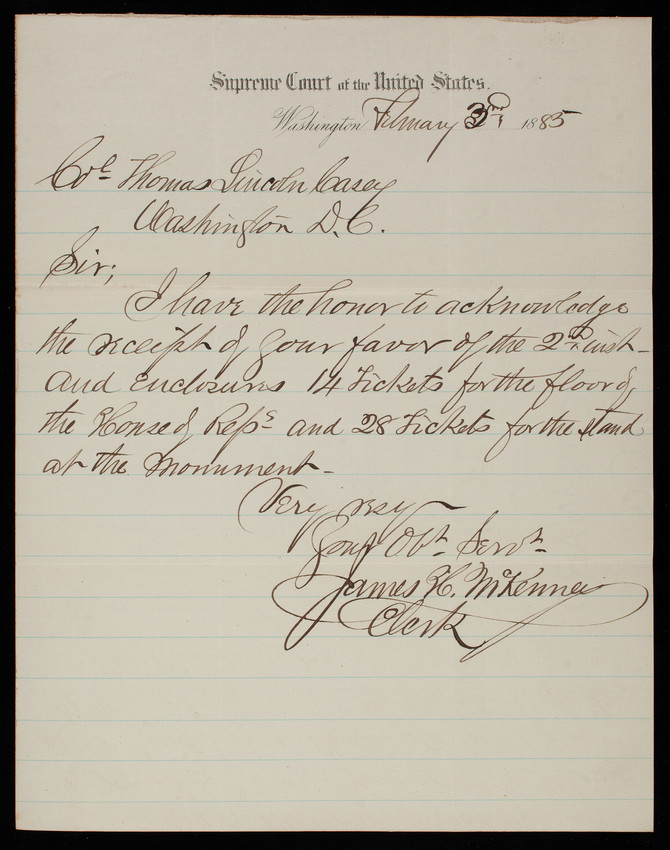 Supreme Court of the United States.
Washington February 3rd, 1885
Col Thomas Lincoln Casey
Washington D.C.
Sir;
I have the honor to acknowledge
the receipt of your favor of the 2nd inst-
and enclosures 14 tickets for the floor of
the House of Reps and 28 tickets for the stand
at the monument-
Very resy
Your Obt Servt
James H. McKenney
Clerk